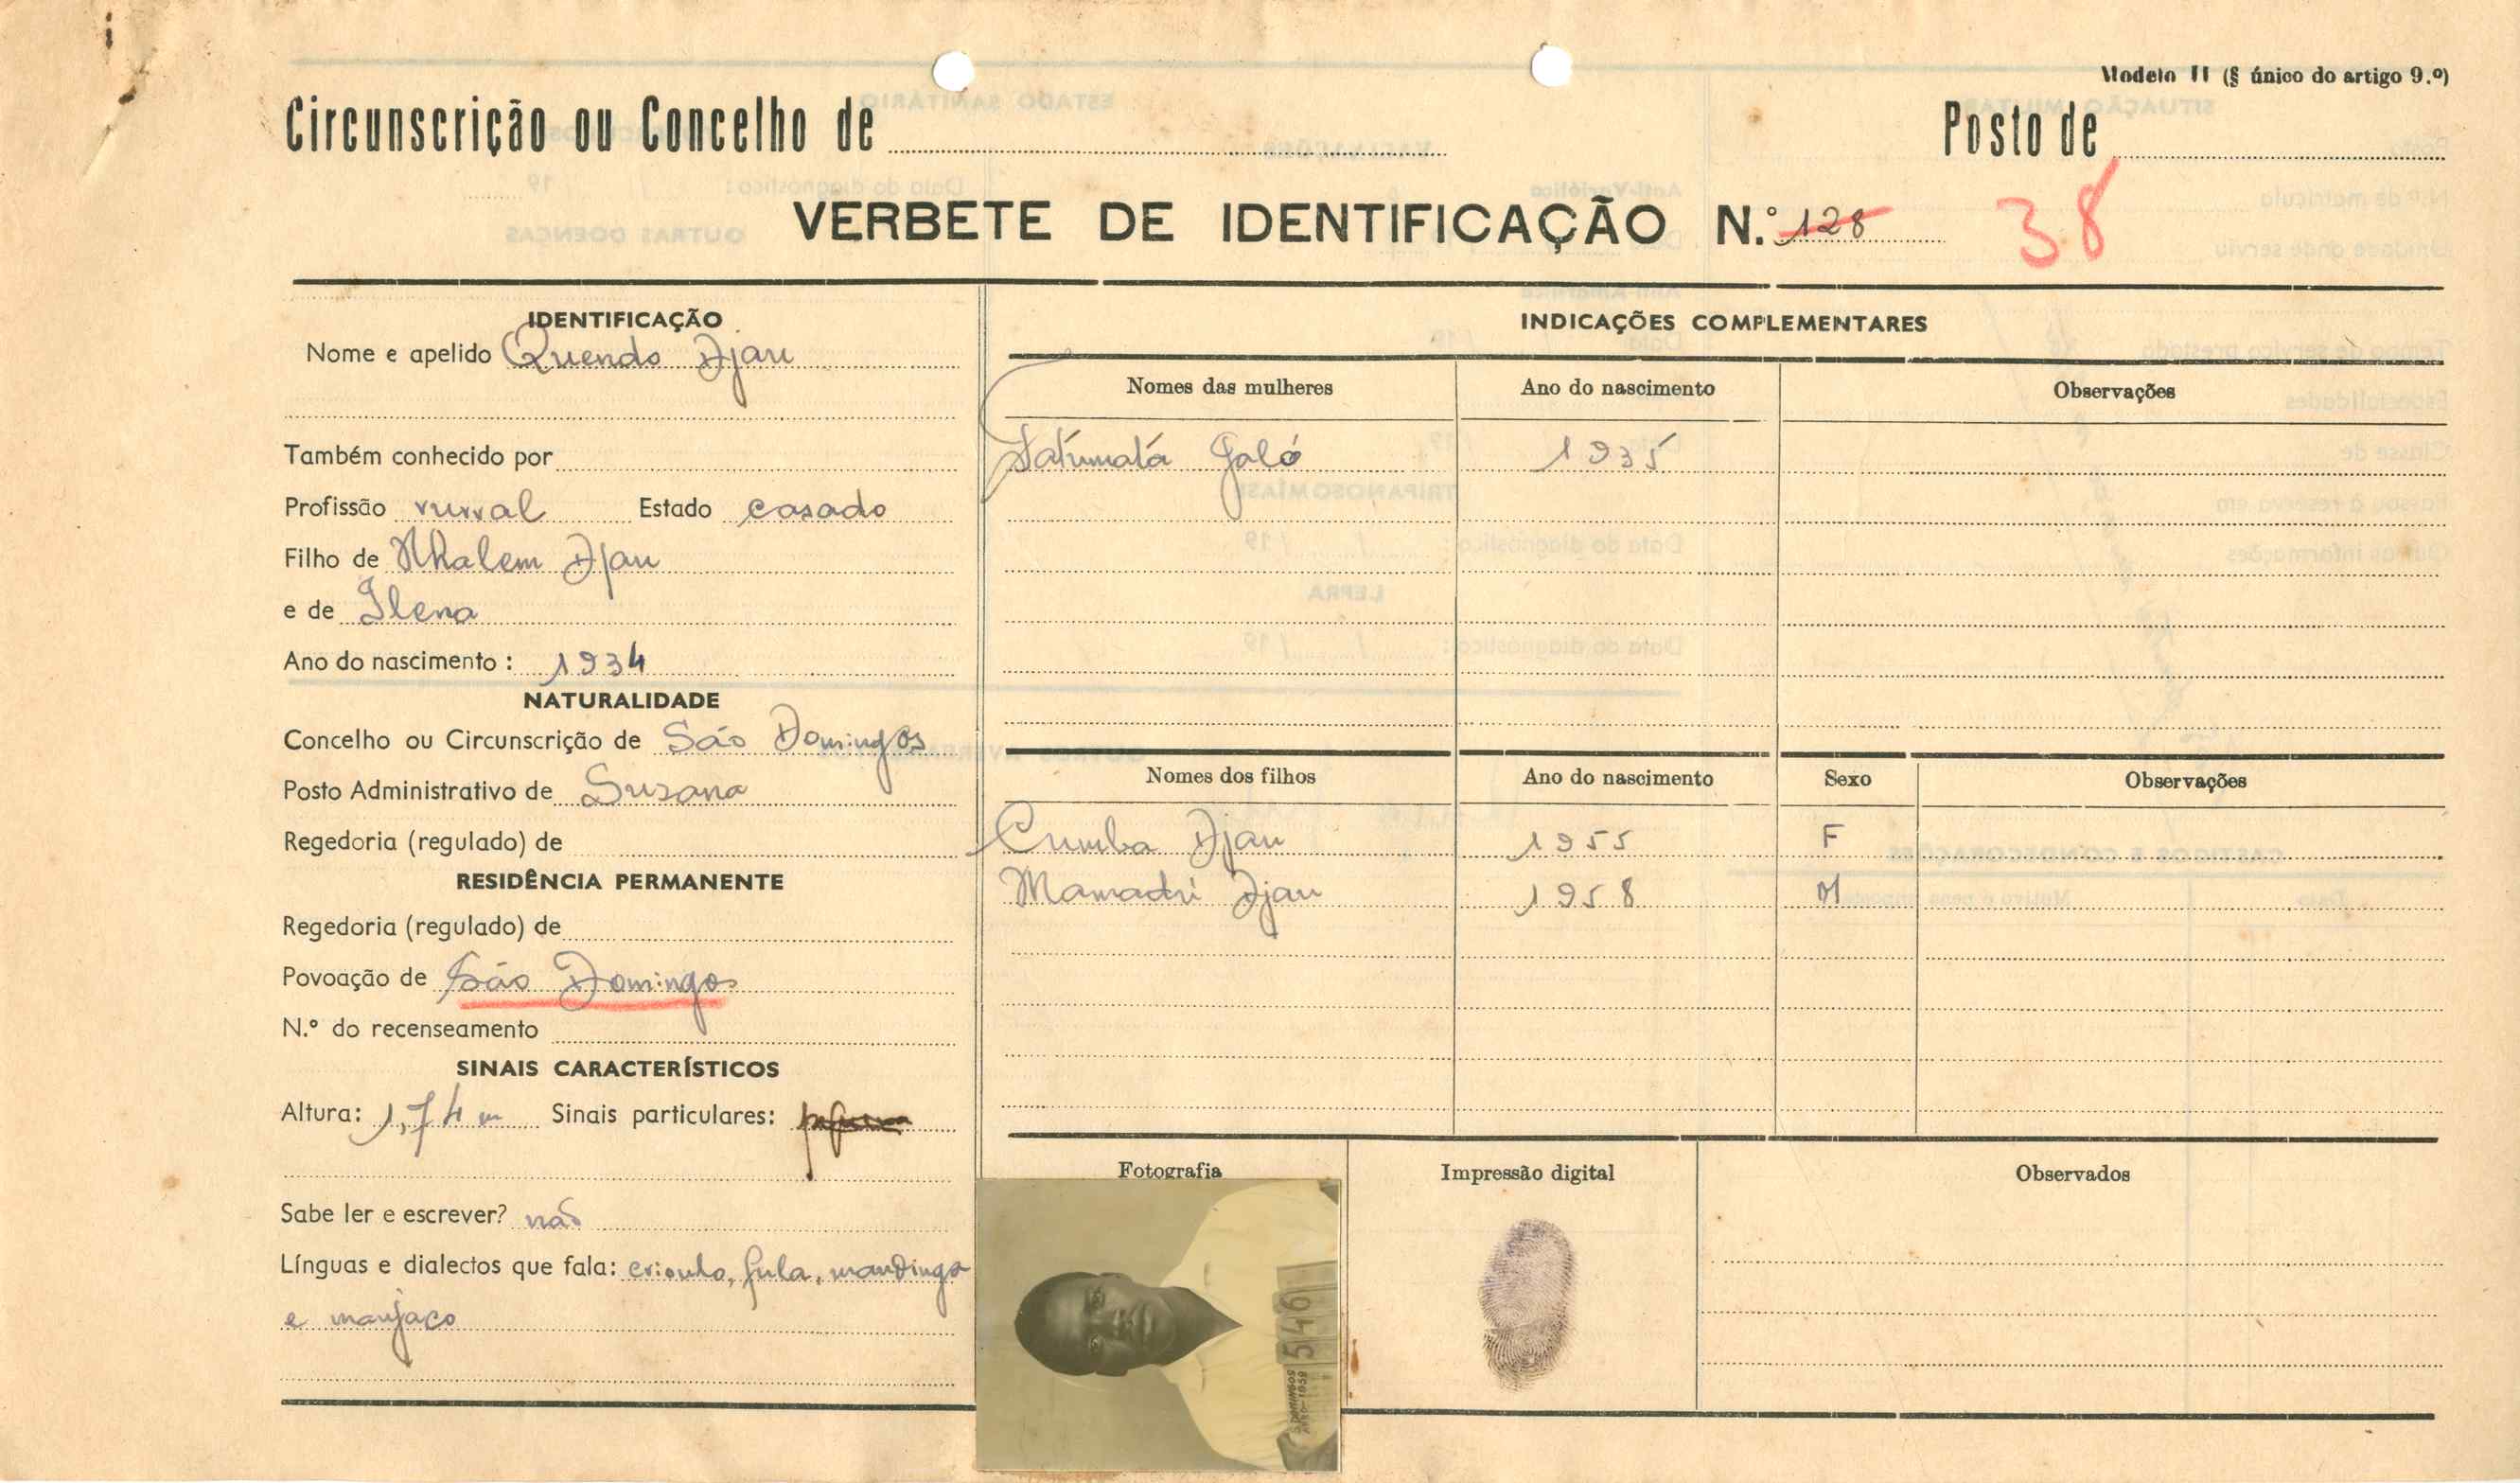 Modelo II (§ único do artigo 9.º)
Circunscrição ou Concelho de
Posto de
VERBETE DE IDENTIFICAÇÃO N.º 128
38
IDENTIFICAÇÃO
Nome e apelido Quendo Djau
Também conhecido por
Profissão rural Estado casado
Filho de Nhalem Djau
e de Ilena
Ano do nascimento: 1934
NATURALIDADE
Concelho ou Circunscrição de São Domingos
Posto Administrativo de Suzana
Regedoria (regulado) de
RESIDÊNCIA PERMANENTE
Regedoria (regulado) de
Povoação de São Domingos
N.º do recenseamento
SINAIS CARACTERÍSTICOS
Altura: 1,74 m Sinais particulares:
Sabe ler e escrever? não
Línguas e dialectos que fala: crioulo, fula, mandinga
e manjaco
INDICAÇÕES COMPLEMENTARES
Nomes das mulheres Ano do nascimento Observações
Fatumatá Galó 1935
Nomes dos filhos Ano do nascimento Sexo Observações
Cumba Djau 1955 F
Mamadú Djau 1958 M
Fotografia Impressão digital Observados
546
DOMINGOS
ANO-1959